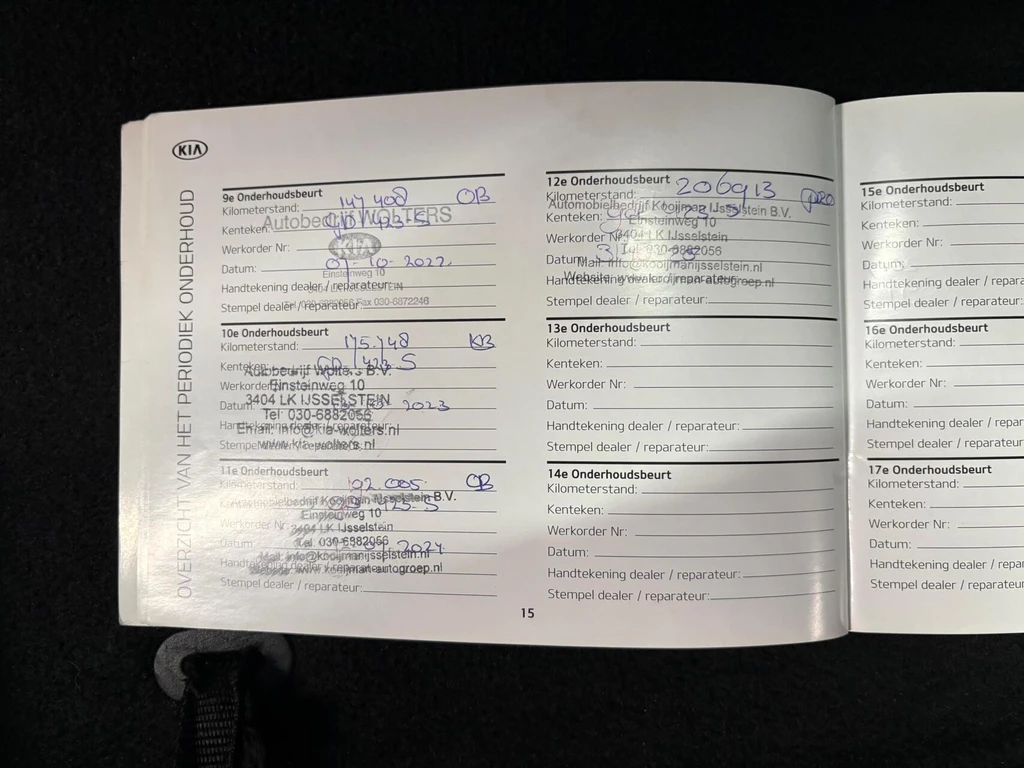 KIA
OVERZICHT VAN HET PERIODIEK ONDERHOUD
9e Onderhoudsbeurt
Kilometerstand: 147 408 OB
Autobedrijf WOLTERS
Kenteken:
KIA
Werkorder Nr:
Datum: 07-10-2022
Einsteinweg 10
Handtekening dealer / reparateur:
Tel. 030-6882056 Fax 030-6872246
Stempel dealer / reparateur:
10e Onderhoudsbeurt
Kilometerstand: 175.748 KB
Kenteken:
Autobedrijf Wolters B.V.
Werkorder
Einsteinweg 10
3404 LK IJSSELSTEIN
Datum: 2023
Tel: 030-6882056
Handtekening dealer / reparateur:
Email: info@kia-wolters.nl
Stempel dealer / reparateur:
www.kia-wolters.nl
11e Onderhoudsbeurt
Kilometerstand: 192.005 OB
Kenteken:
Automobielbedrijf Kooijman IJsselstein B.V.
Einsteinweg 10
Werkorder Nr:
3404 LK IJsselstein
Datum: 2024
Tel. 030-6882056
Mail: info@kooijmanijsselstein.nl
Handtekening dealer / reparateur:
Website: www.kooijman-autogroep.nl
Stempel dealer / reparateur:
15
12e Onderhoudsbeurt
Kilometerstand: 206913
Automobielbedrijf Kooijman IJsselstein B.V.
Kenteken:
Einsteinweg 10
Werkorder Nr:
3404 LK IJsselstein
Tel. 030-6882056
Datum:
Mail: info@kooijmanijsselstein.nl
Handtekening dealer / reparateur:
Website: www.kooijman-autogroep.nl
Stempel dealer / reparateur:
13e Onderhoudsbeurt
Kilometerstand:
Kenteken:
Werkorder Nr:
Datum:
Handtekening dealer / reparateur:
Stempel dealer / reparateur:
14e Onderhoudsbeurt
Kilometerstand:
Kenteken:
Werkorder Nr:
Datum:
Handtekening dealer / reparateur:
Stempel dealer / reparateur:
15e Onderhoudsbeurt
Kilometerstand:
Kenteken:
Werkorder Nr:
Datum:
Handtekening dealer / repara
Stempel dealer / reparateur:
16e Onderhoudsbeurt
Kilometerstand:
Kenteken:
Werkorder Nr:
Datum:
Handtekening dealer / repar
Stempel dealer / reparateur
17e Onderhoudsbeurt
Kilometerstand:
Kenteken:
Werkorder Nr:
Datum:
Handtekening dealer / repa
Stempel dealer / reparateur